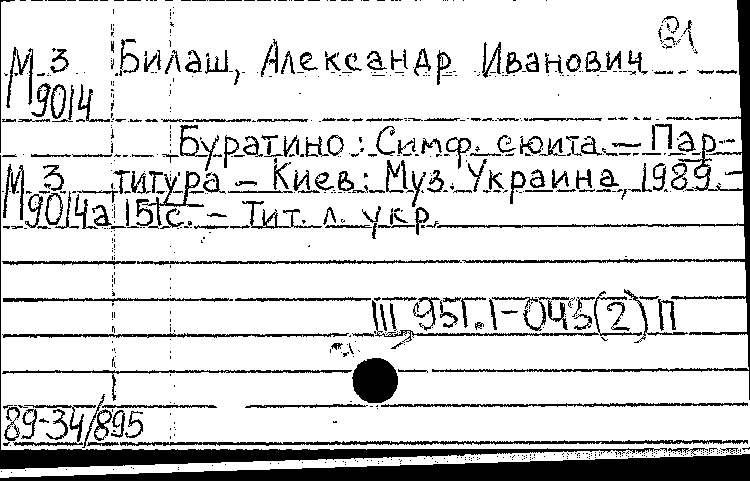 Билаш, Александр Иванович
М 3
9014
Буратино : Симф. сюита. — Пар-
М 3
9014а
титура — Киев : Муз. Украина, 1989. -
151с. - Тит. л. укр.
III 951.1-043(2) П
89-34/895